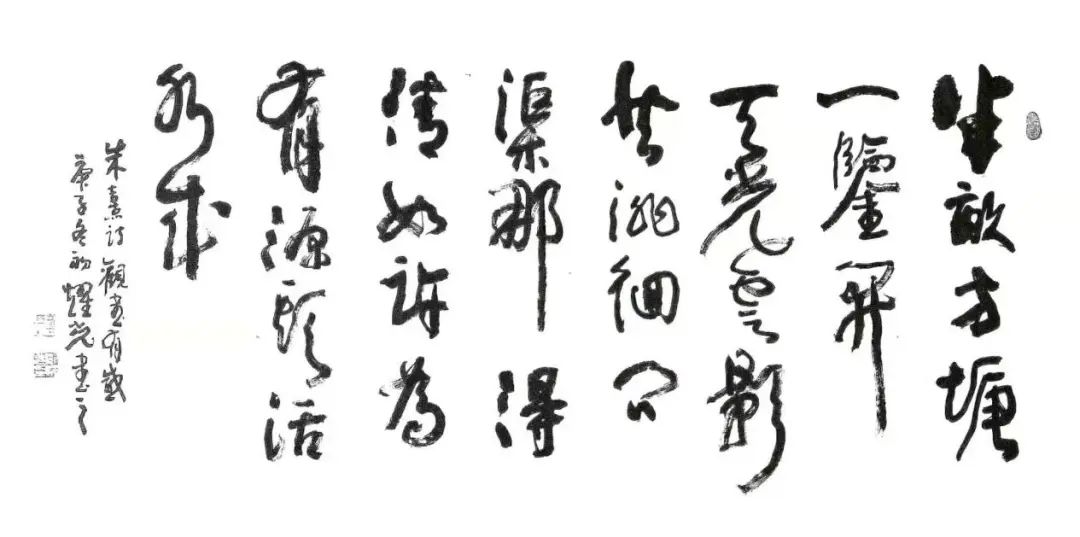 半畝方塘
一鑒開
天光雲影
共徘徊問
渠那得
清如許為
有源頭活
水來
朱熹詩觀書有感
庚子冬初燿光書之